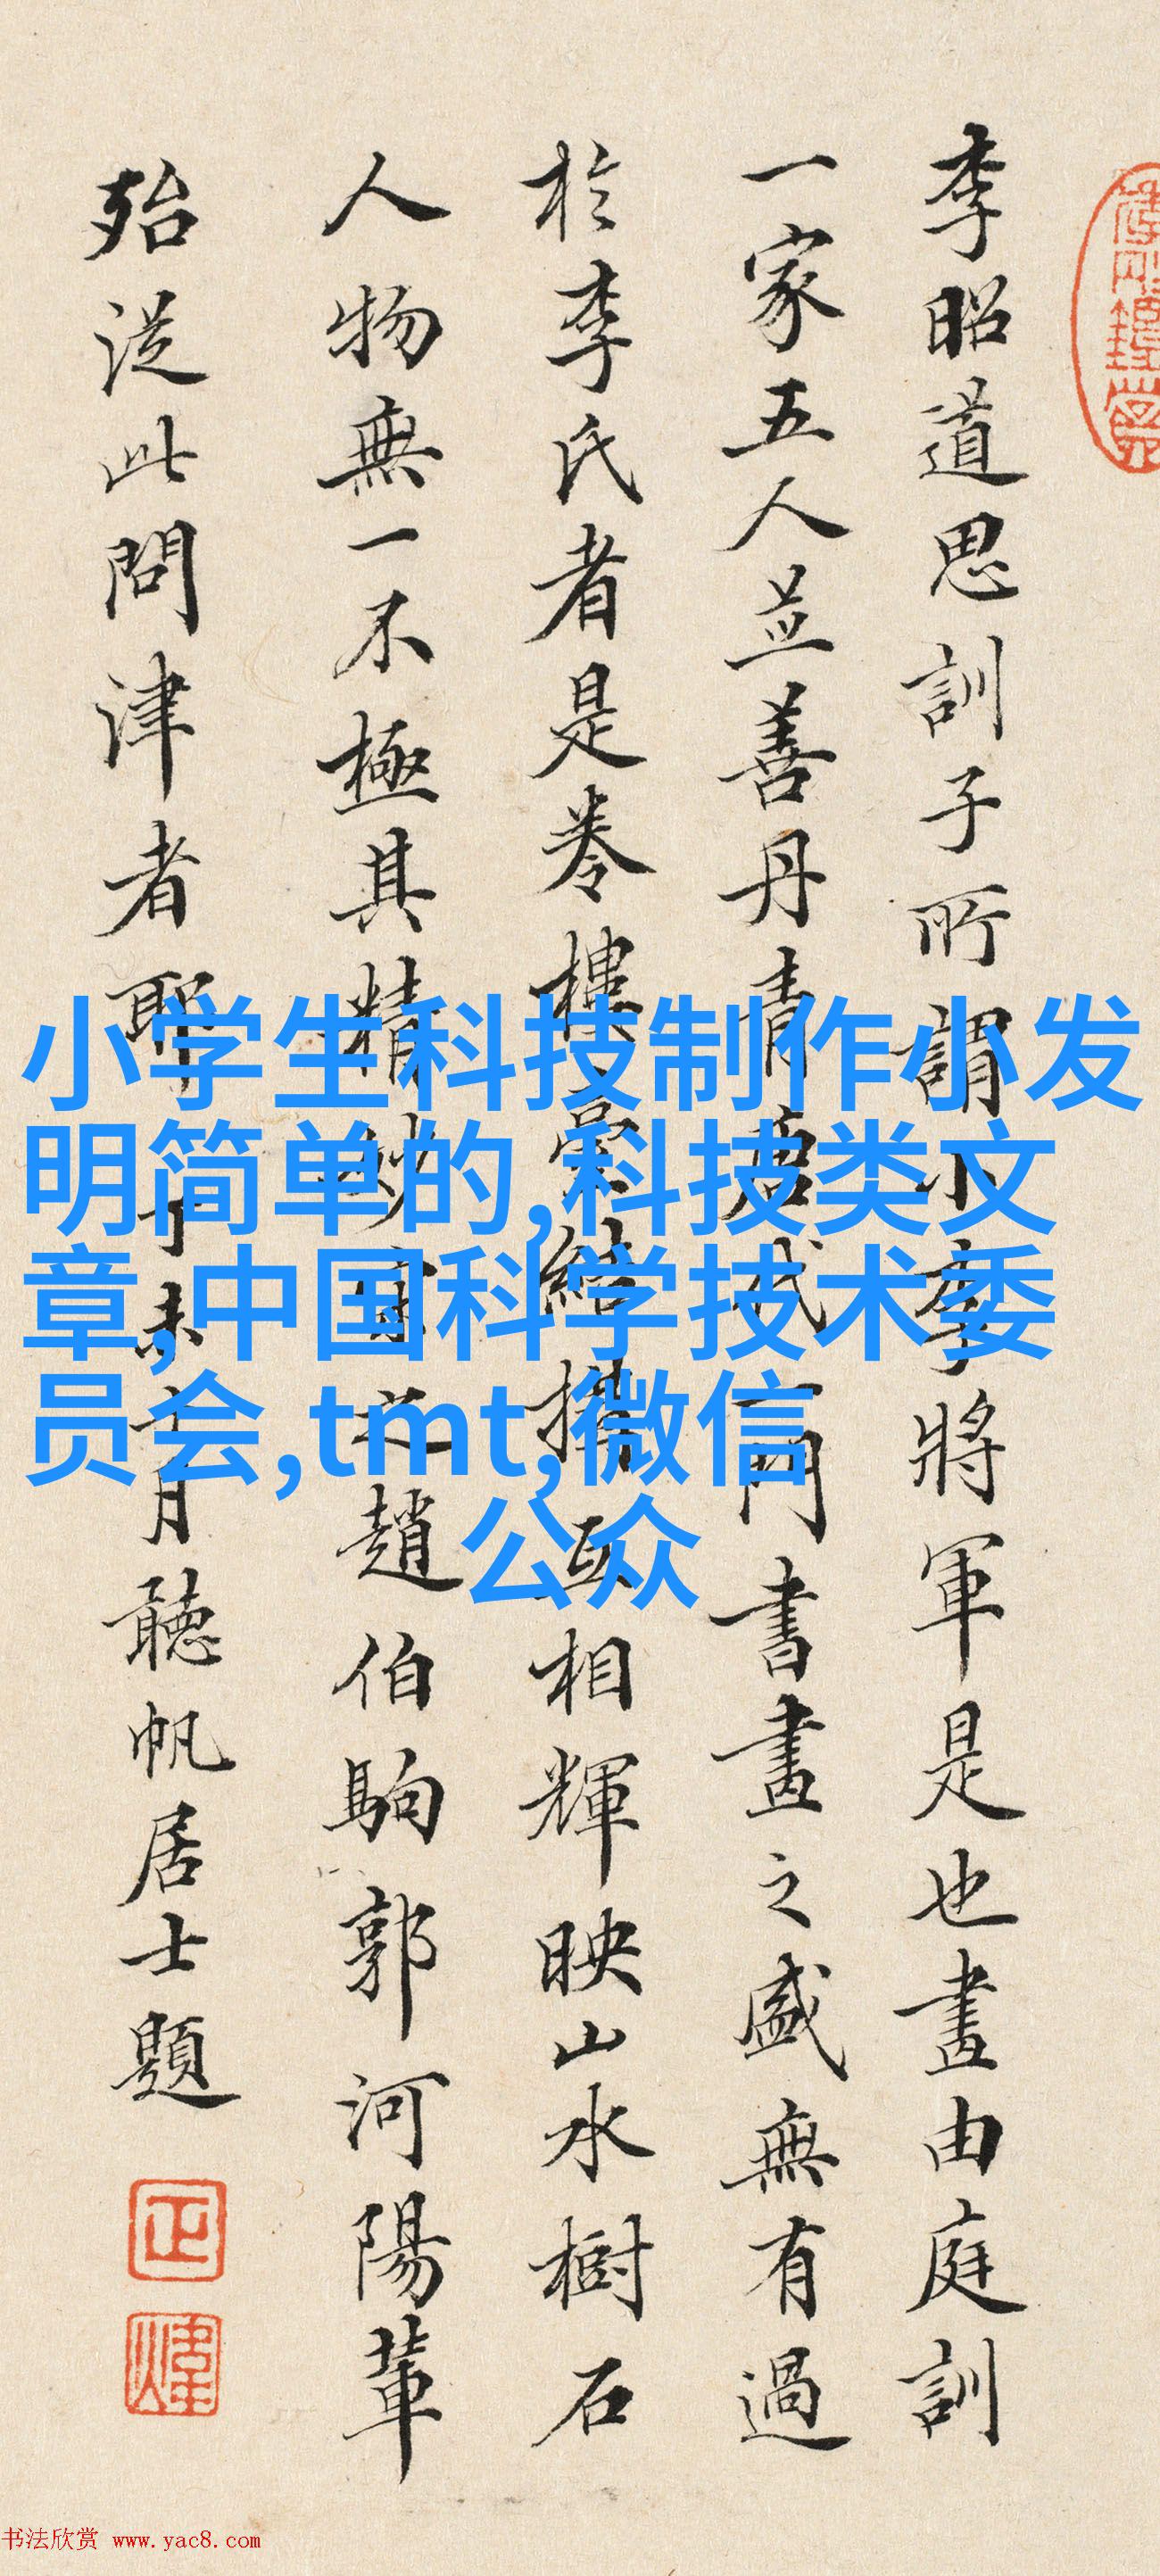 李昭道思訓子所謂小李將軍是也畫由庭訓
一家五人並善丹青唐代一門書畫之盛無有過
於李氏者是卷樓臺結構互相輝映山水樹石
人物無一不極其精妙宋之趙伯駒郭河陽輩
殆從此問津者耶丁未六月聽帆居士題
小学生科技制作小发
明简单的,科技类文
章,中国科学技术委
员会,tmt,微信
公众
书法欣赏 www.yac8.com